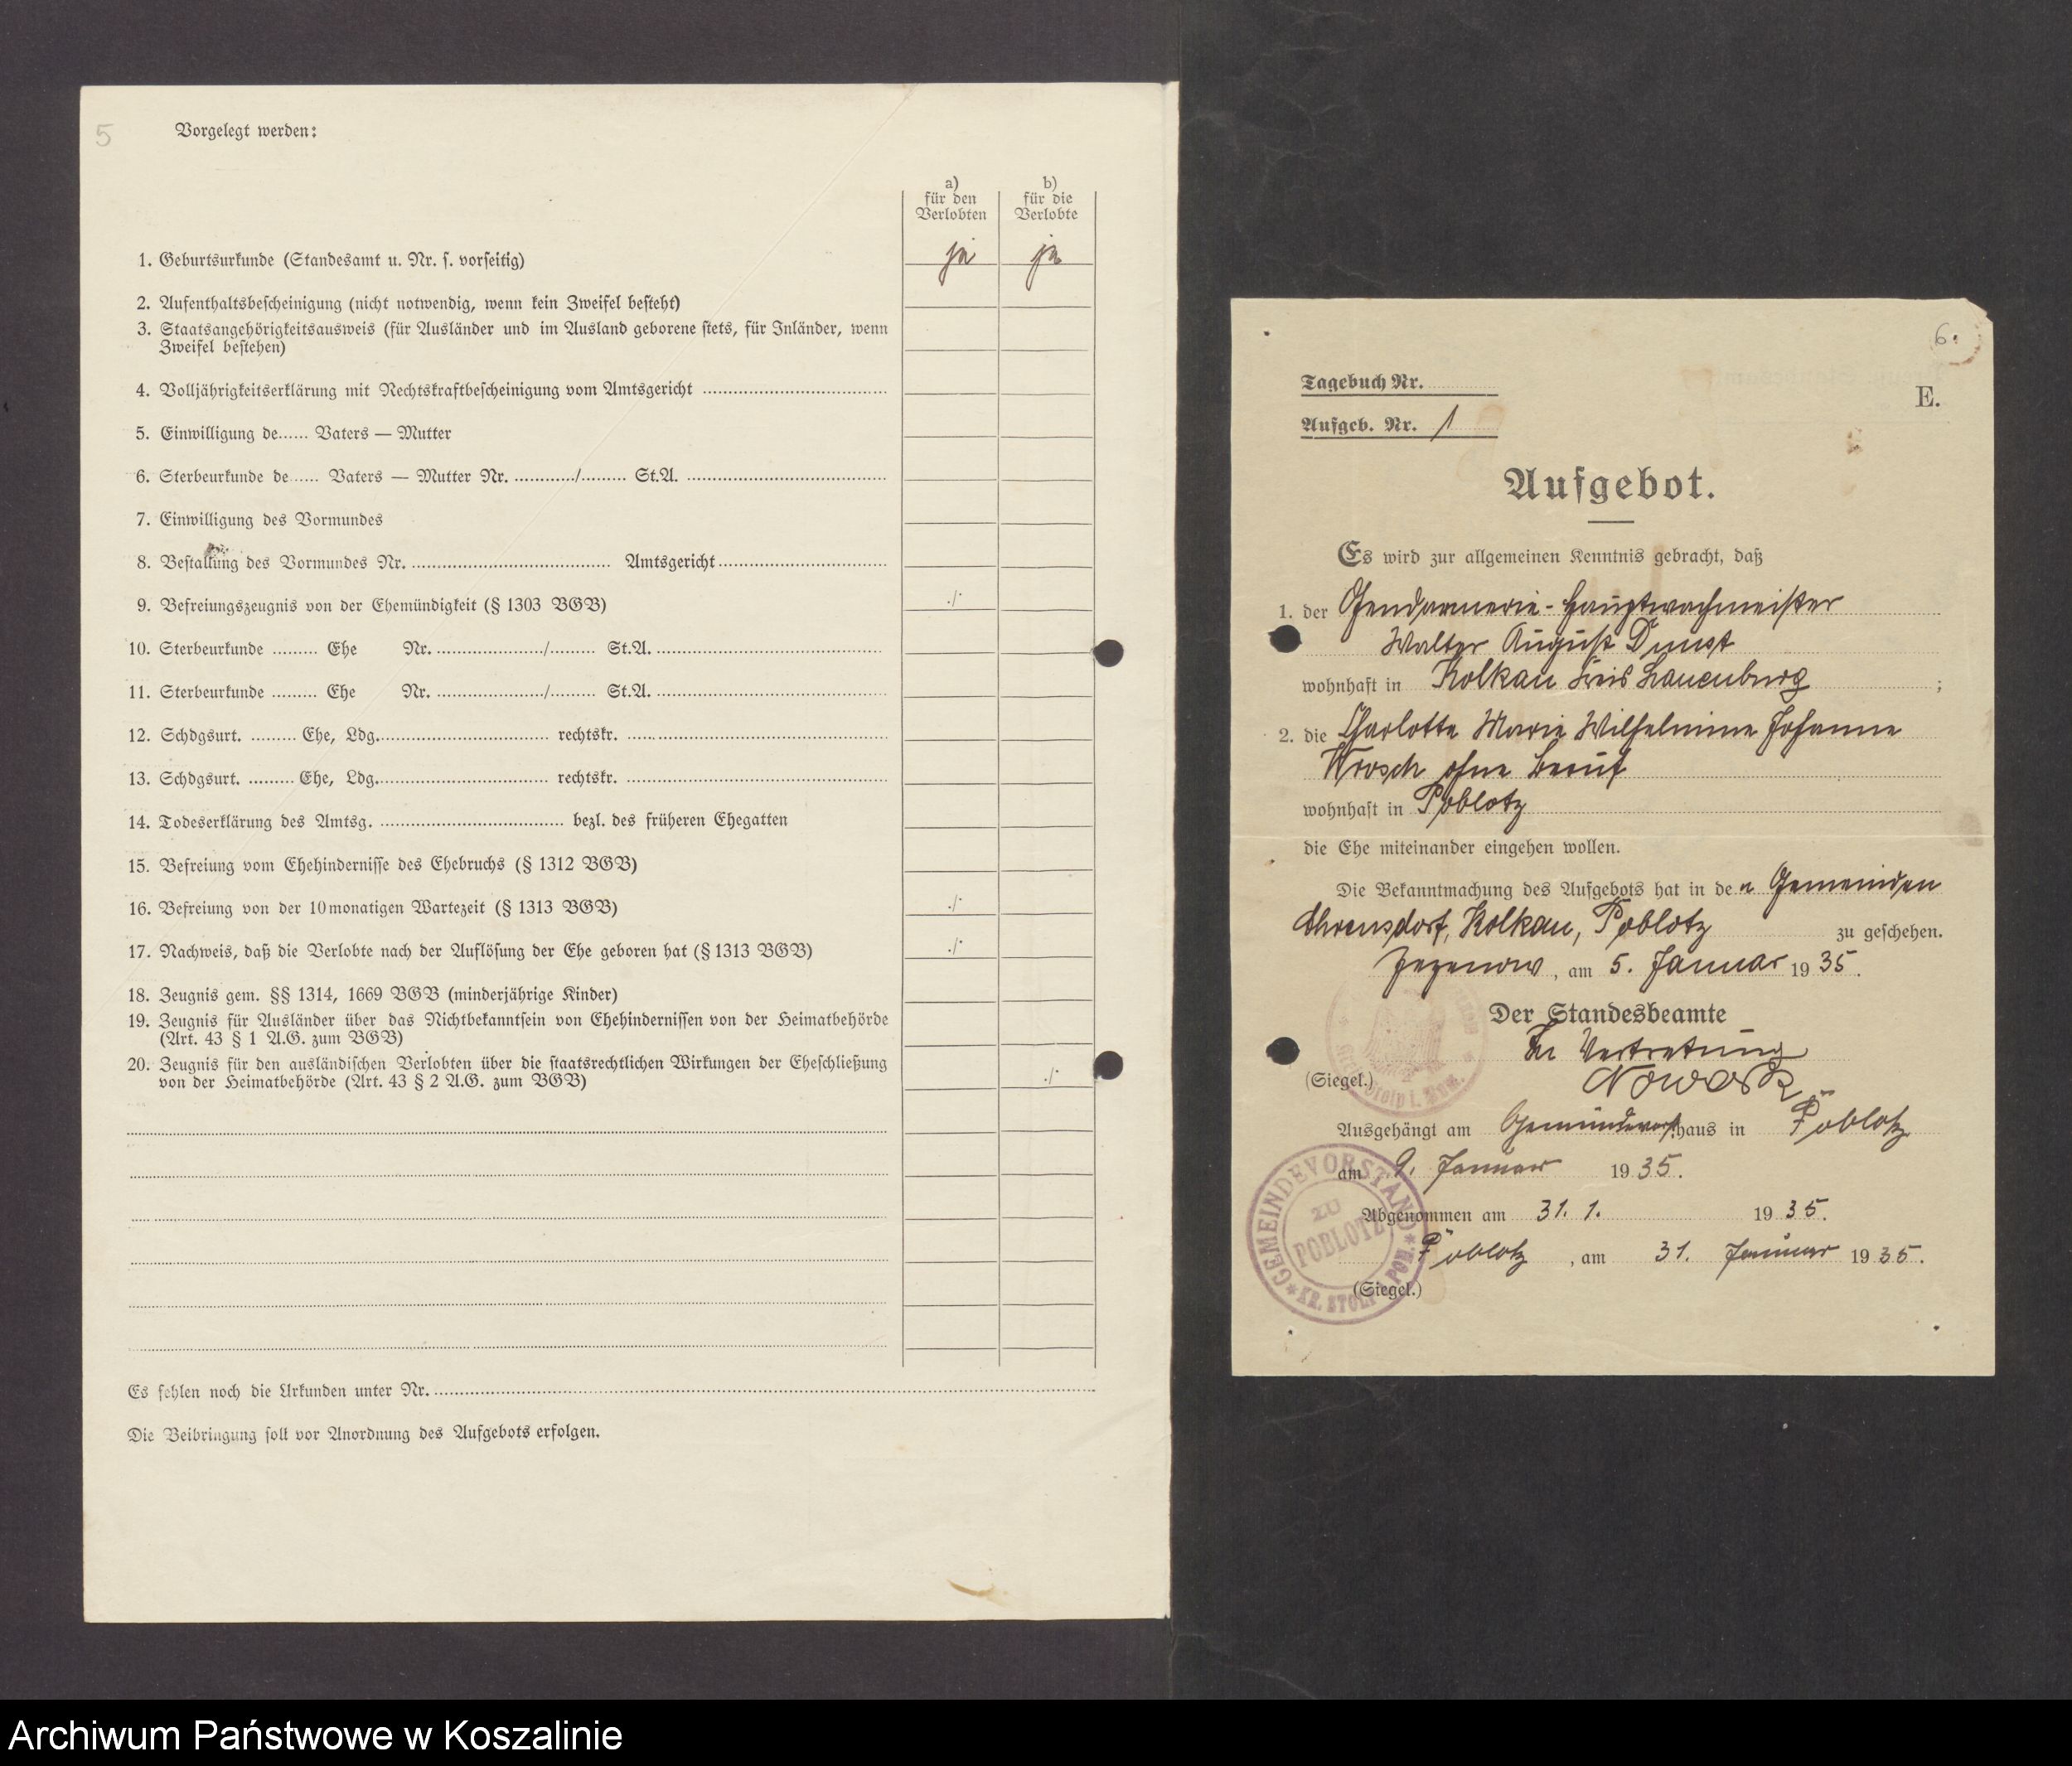 5
Vorgelegt werden:
a)
für den
Verlobten
b)
für die
Verlobte
1. Geburtsurkunde (Standesamt u. Nr. s. vorseitig) ja ja
2. Aufenthaltsbescheinigung (nicht notwendig, wenn kein Zweifel besteht)
3. Staatsangehörigkeitsausweis (für Ausländer und im Ausland geborene stets, für Inländer, wenn
Zweifel bestehen)
4. Volljährigkeitserklärung mit Rechtskraftbescheinigung vom Amtsgericht
5. Einwilligung de...... Vaters — Mutter
6. Sterbeurkunde de...... Vaters — Mutter Nr. ............/......... St.A.
7. Einwilligung des Vormundes
8. Bestallung des Vormundes Nr. ........ Amtsgericht
9. Befreiungszeugnis von der Ehemündigkeit (§ 1303 BGB) ./.
10. Sterbeurkunde ......... Ehe Nr. ............/......... St.A.
11. Sterbeurkunde ......... Ehe Nr. ............/......... St.A.
12. Schdgsurt. ......... Ehe, Ldg. ............ rechtskr.
13. Schdgsurt. ......... Ehe, Ldg. ............ rechtskr.
14. Todeserklärung des Amtsg. ............ bezl. des früheren Ehegatten
15. Befreiung vom Ehehindernisse des Ehebruchs (§ 1312 BGB)
16. Befreiung von der 10monatigen Wartezeit (§ 1313 BGB) ./.
17. Nachweis, daß die Verlobte nach der Auflösung der Ehe geboren hat (§ 1313 BGB) ./.
18. Zeugnis gem. §§ 1314, 1669 BGB (minderjährige Kinder)
19. Zeugnis für Ausländer über das Nichtbekanntsein von Ehehindernissen von der Heimatbehörde
(Art. 43 § 1 A.G. zum BGB)
20. Zeugnis für den ausländischen Verlobten über die staatsrechtlichen Wirkungen der Eheschließung
von der Heimatbehörde (Art. 43 § 2 A.G. zum BGB) ./.
Es fehlen noch die Urkunden unter Nr.
Die Beibringung soll vor Anordnung des Aufgebots erfolgen.
6.
Tagebuch Nr.
E.
Aufgeb. Nr. 1
Aufgebot.
Es wird zur allgemeinen Kenntnis gebracht, daß
1. der Gendarmerie-Hauptwachmeister
Walter August Dunst
wohnhaft in Kolkau Kreis Lauenburg ;
2. die Charlotte Marie Wilhelmine Johanne
Wrosch ohne Beruf
wohnhaft in Poblotz
die Ehe miteinander eingehen wollen.
Die Bekanntmachung des Aufgebots hat in de n Gemeinden
Ahrensdorf, Kolkau, Poblotz zu geschehen.
Zezenow, am 5. Januar 1935.
Der Standesbeamte
In Vertretung
(Siegel.) Nowack
Ausgehängt am Gemeindevorst.haus in Poblotz
am 9. Januar 1935.
Abgenommen am 31. 1. 1935.
Poblotz, am 31. Januar 1935.
(Siegel.)
GEMEINDEVORSTAND
ZU
POBLOTZ
KR. STOLP POM.
Archiwum Państwowe w Koszalinie